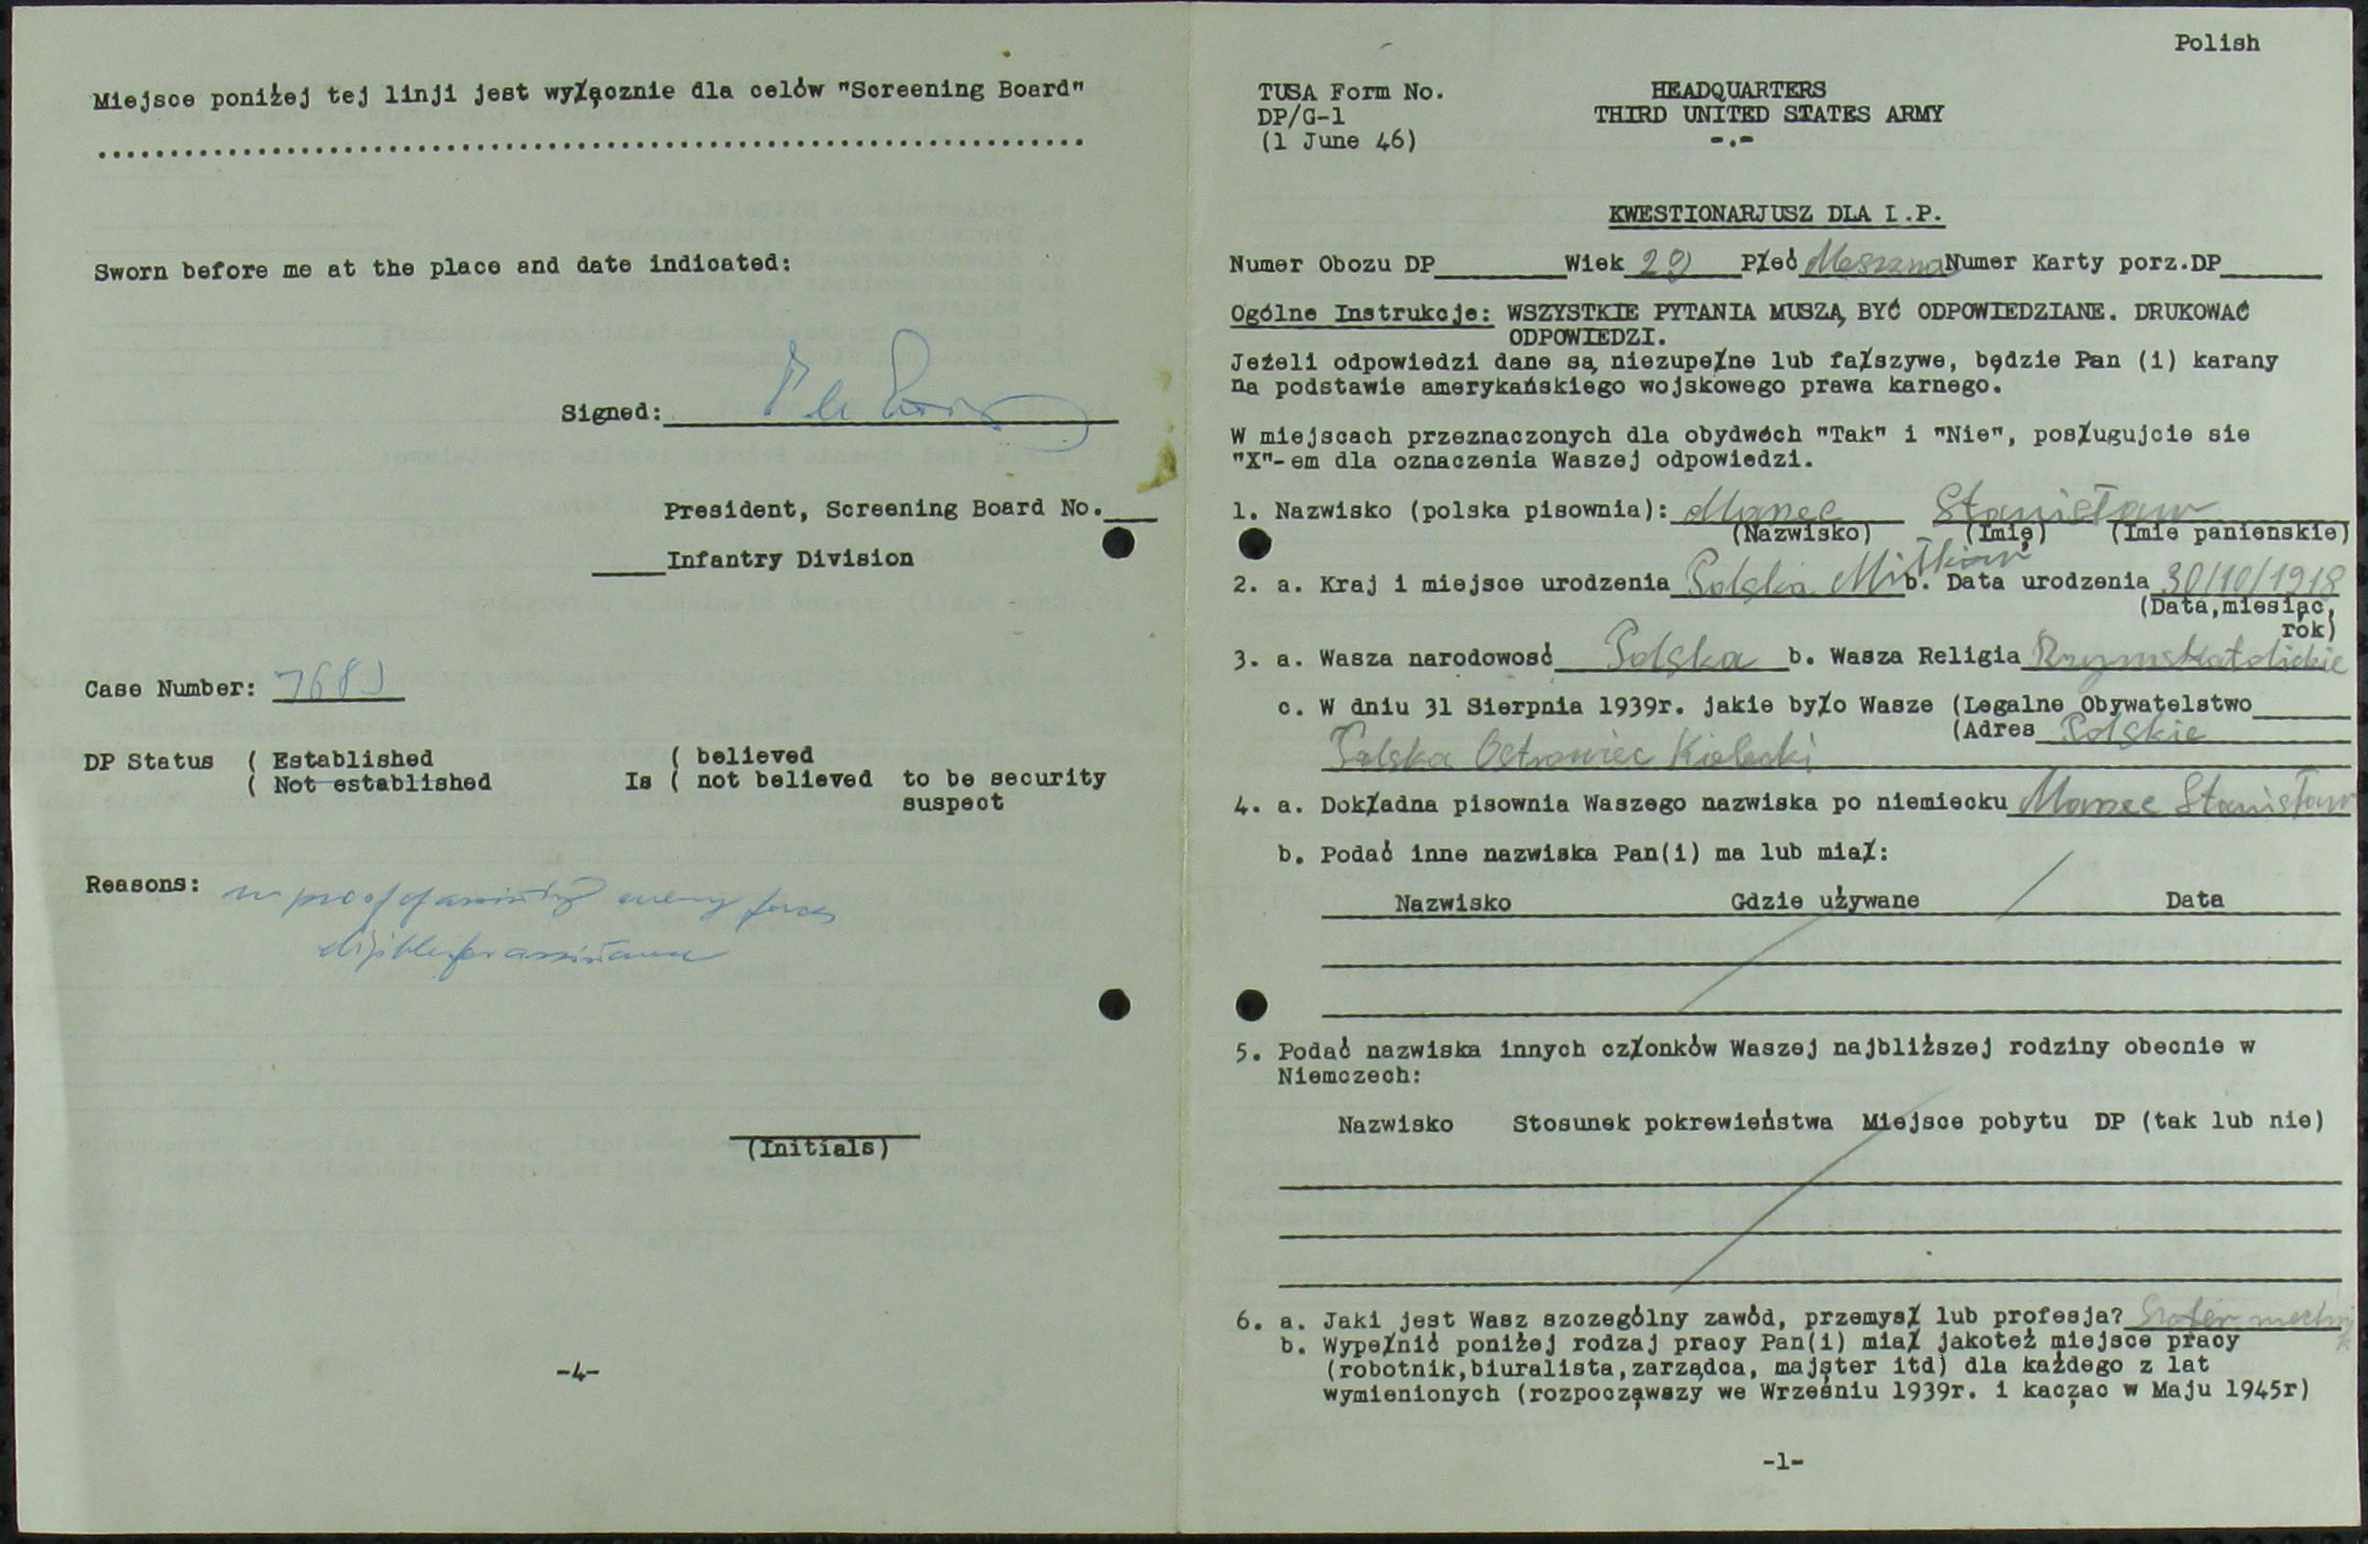 Miejsce poniżej tej linji jest wyłącznie dla celów "Screening Board"
Sworn before me at the place and date indicated:
Signed:
President, Screening Board No.
Infantry Division
Case Number:
DP Status ( Established ( believed
( Not established Is ( not believed to be security
suspect
Reasons: proof of assisting enemy forces
eligible for assistance
(Initials)
-4-
Polish
TUSA Form No. HEADQUARTERS
DP/G-1 THIRD UNITED STATES ARMY
(1 June 46) -.-
KWESTIONARJUSZ DLA I.P.
Numer Obozu DP Wiek 29 Płeć Numer Karty porz.DP
Ogólne Instrukcje: WSZYSTKIE PYTANIA MUSZĄ BYĆ ODPOWIEDZIANE. DRUKOWAĆ
ODPOWIEDZI.
Jeżeli odpowiedzi dane są niezupełne lub fałszywe, będzie Pan (i) karany
na podstawie amerykańskiego wojskowego prawa karnego.
W miejscach przeznaczonych dla obydwóch "Tak" i "Nie", posługujcie sie
"X"-em dla oznaczenia Waszej odpowiedzi.
1. Nazwisko (polska pisownia): Stanisław
(Nazwisko) (Imię) (Imie panienskie)
2. a. Kraj i miejsce urodzenia Polska b. Data urodzenia 30/10/1918
(Data,miesiąc,
rok)
3. a. Wasza narodowość Polska b. Wasza Religia Rzymskatolickie
c. W dniu 31 Sierpnia 1939r. jakie było Wasze (Legalne Obywatelstwo
(Adres Polskie
Polska Ostrowiec Kielecki
4. a. Dokładna pisownia Waszego nazwiska po niemiecku Stanisław
b. Podać inne nazwiska Pan(i) ma lub miał:
Nazwisko Gdzie używane Data
5. Podać nazwiska innych członków Waszej najbliższej rodziny obecnie w
Niemczech:
Nazwisko Stosunek pokrewieństwa Miejsce pobytu DP (tak lub nie)
6. a. Jaki jest Wasz szczególny zawód, przemysł lub profesja?
b. Wypełnić poniżej rodzaj pracy Pan(i) miał jakoteż miejsce pracy
(robotnik,biuralista,zarządca, majster itd) dla każdego z lat
wymienionych (rozpocząwszy we Wrześniu 1939r. i kacząc w Maju 1945r)
-1-